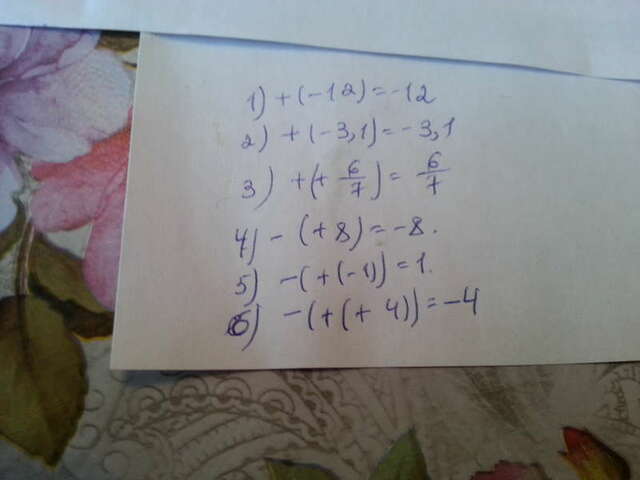 1) +(-12)=-12
2) +(-3,1)=-3,1
3) +(+ 6/7)= 6/7
4) -(+8)=-8.
5) -(+(-1))=1.
6) -(+(+ 4))=-4